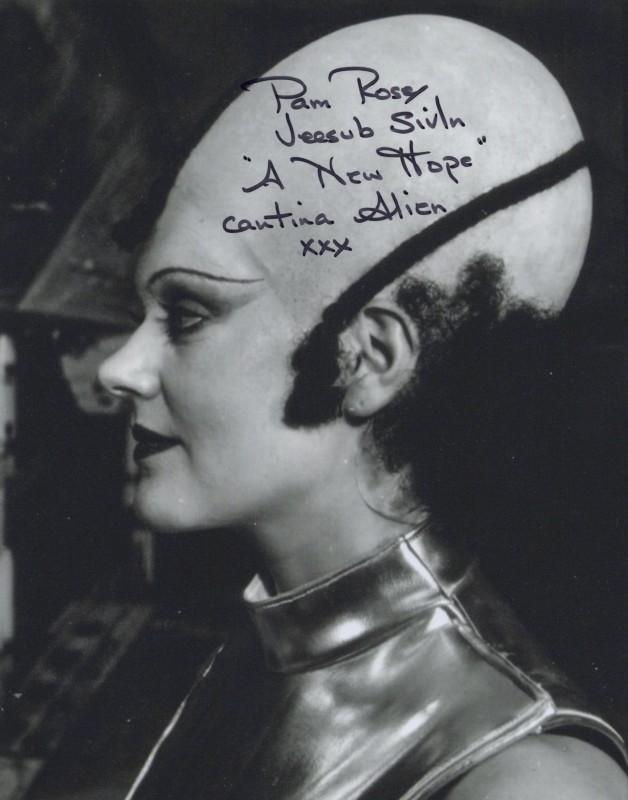 Pam Rose
Jeesub Sivln
"A New Hope"
cantina Alien
xxx